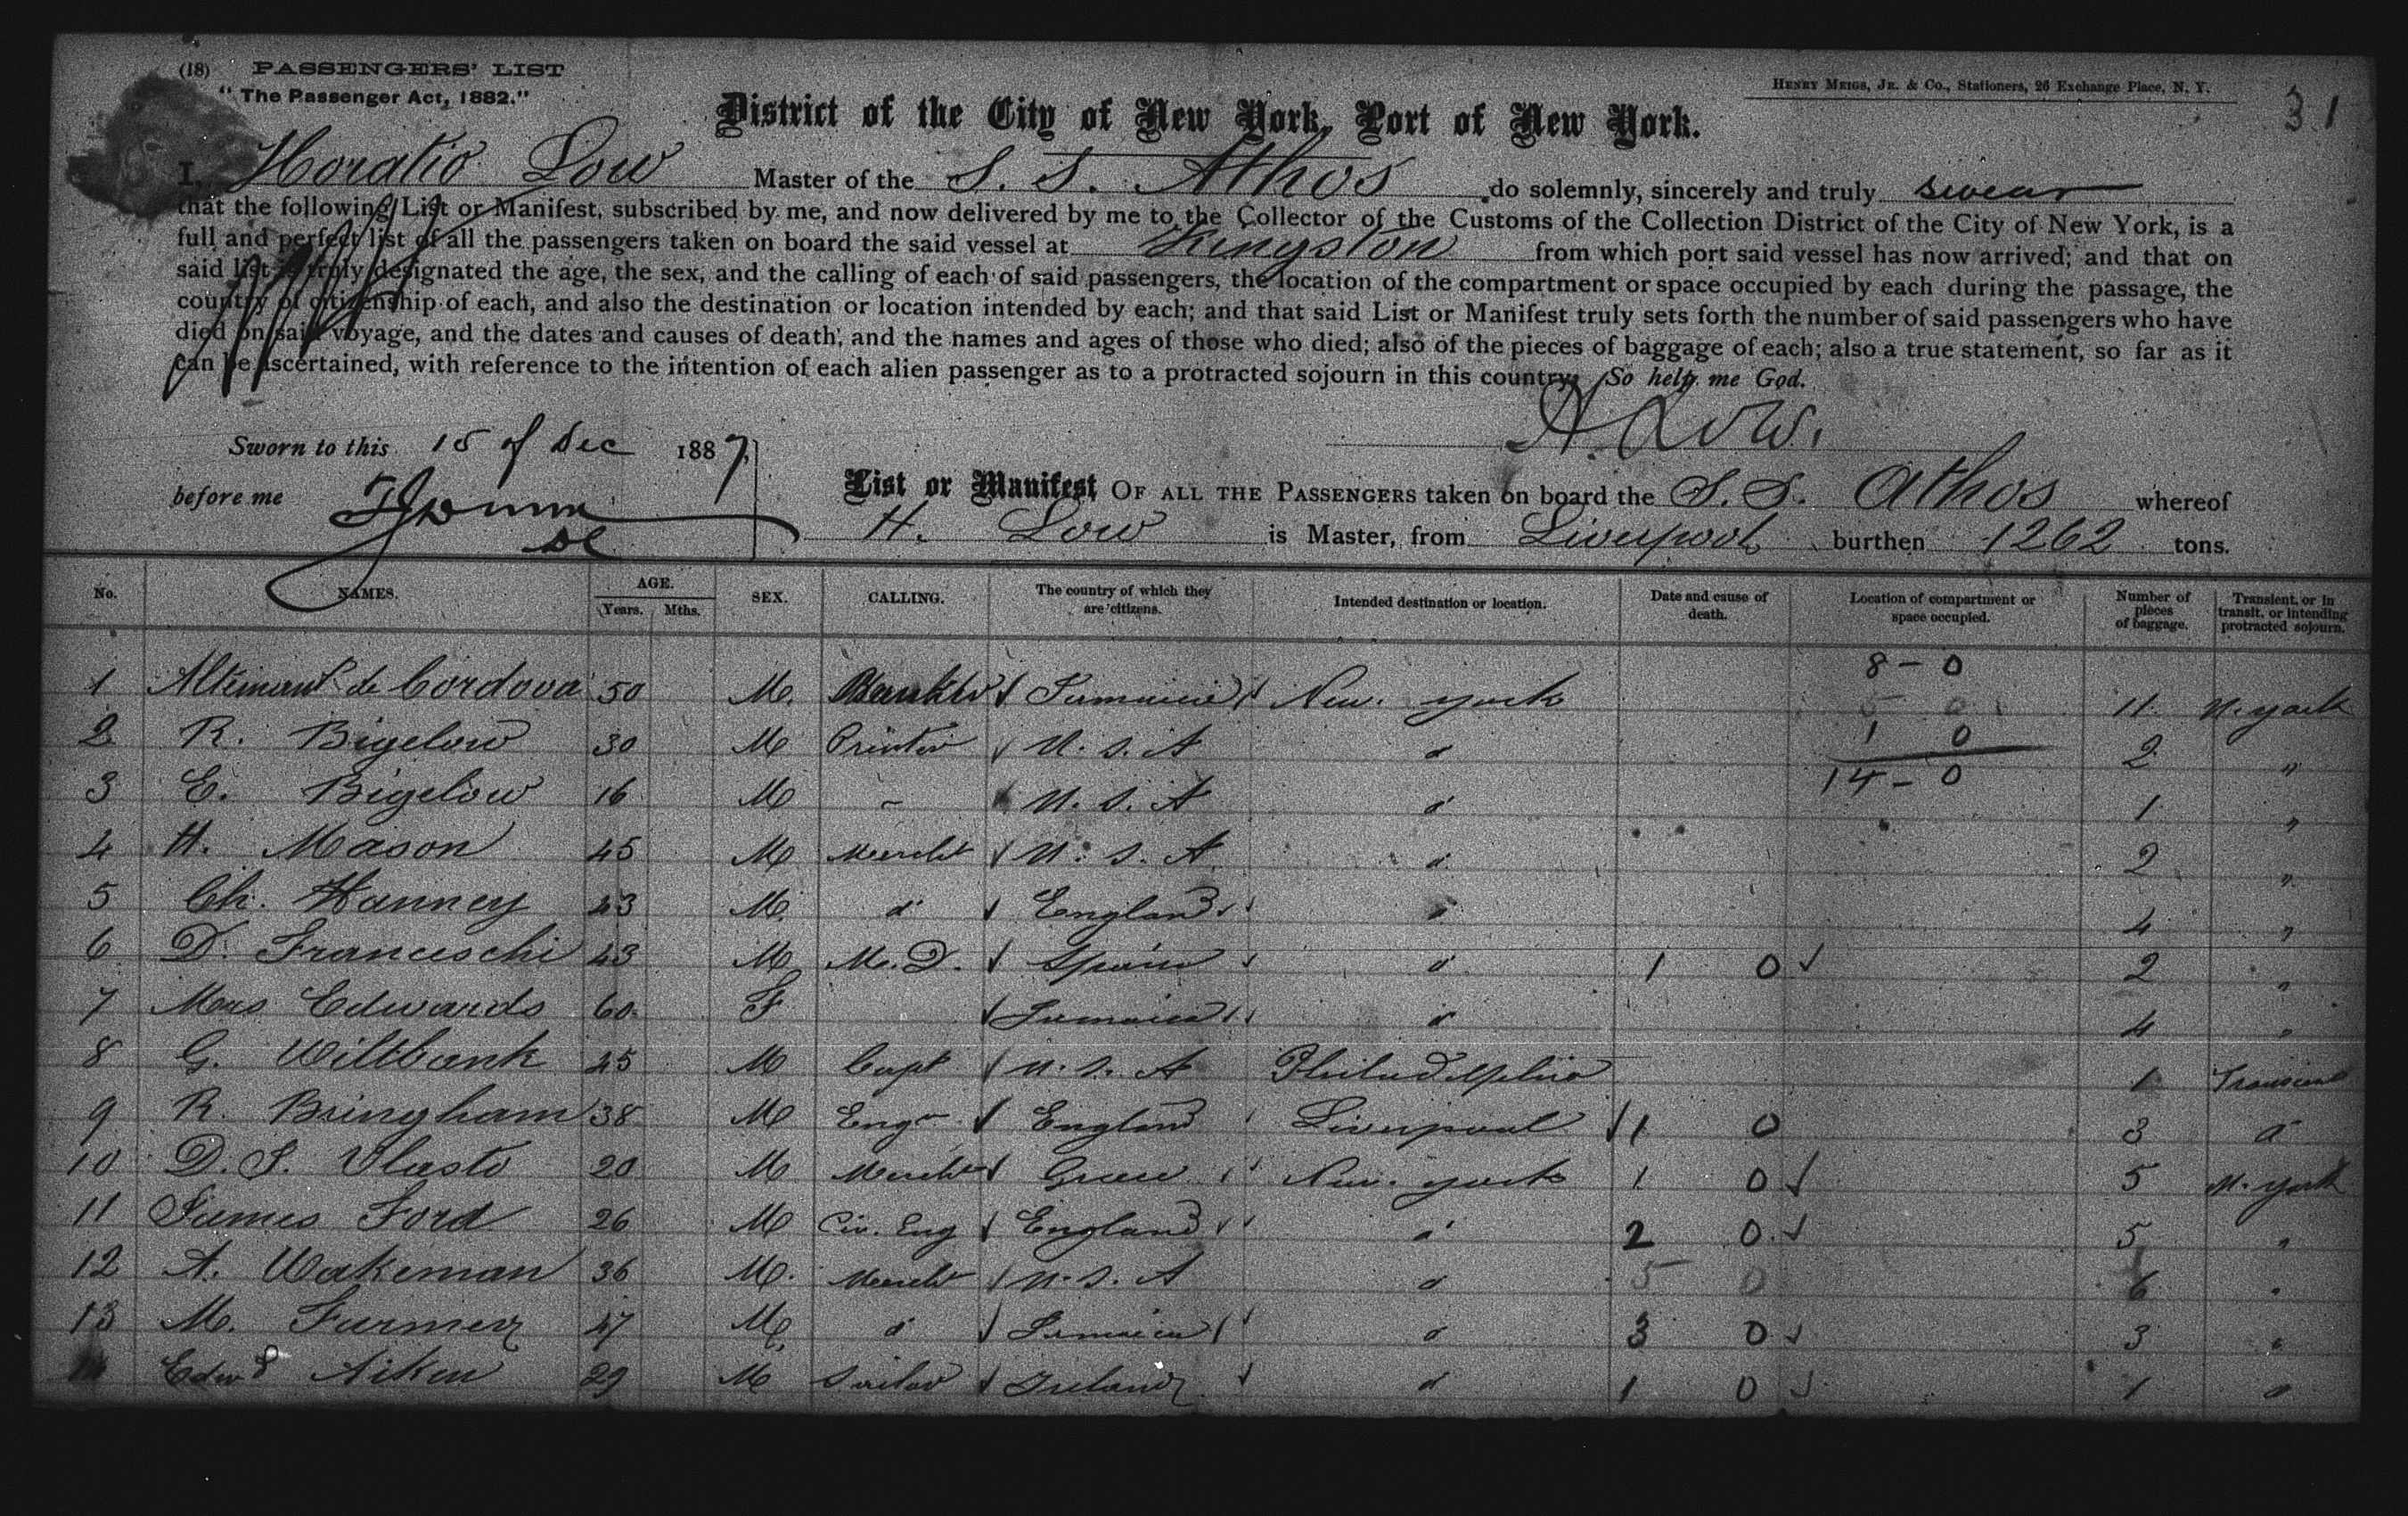 (18) PASSENGERS' LIST
"The Passenger Act, 1882."
HENRY MEIGS, JR. & Co., Stationers, 26 Exchange Place, N. Y.
31
District of the City of New York, Port of New York.
I, Horatio Low Master of the S. S. Athos do solemnly, sincerely and truly swear
that the following List or Manifest, subscribed by me, and now delivered by me to the Collector of the Customs of the Collection District of the City of New York, is a
full and perfect list of all the passengers taken on board the said vessel at Kingston from which port said vessel has now arrived; and that on
said list is truly designated the age, the sex, and the calling of each of said passengers, the location of the compartment or space occupied by each during the passage, the
country of citizenship of each, and also the destination or location intended by each; and that said List or Manifest truly sets forth the number of said passengers who have
died on said voyage, and the dates and causes of death, and the names and ages of those who died; also of the pieces of baggage of each; also a true statement, so far as it
can be ascertained, with reference to the intention of each alien passenger as to a protracted sojourn in this country. So help me God.
H. Low.
Sworn to this 15 of Dec 1887,
before me
List or Manifest OF ALL THE PASSENGERS taken on board the S. S. Athos whereof
H. Low is Master, from Liverpool burthen 1262 tons.
No. NAMES. AGE. Years. Mths. SEX. CALLING. The country of which they are citizens. Intended destination or location. Date and cause of death. Location of compartment or space occupied. Number of pieces of baggage. Transient, or in transit, or intending protracted sojourn.
8 - 0
1 de Cordova 50 M. Banker Jamaica New York 5 0 11 N. York
2 R. Bigelow 30 M Printer U. S. A d 1 0 2 "
3 E. Bigelow 16 M - U. S. A d 14 - 0 1 "
4 H. Mason 45 M Mercht U. S. A d 2 "
5 Ch. Hanney 43 M d England d 4 "
6 D. Franceschi 43 M M. D. Spain d 1 0 2 "
7 Mrs Edwards 60 F Jamaica d 4 "
8 G. Wiltbank 45 M Capt U. S. A Philadelphia 1 Transient
9 R. Bringham 38 M Engr England Liverpool 1 0 3 d
10 D. S. Vlasto 20 M Mercht Greece New York 1 0 5 N. York
11 James Ford 26 M Civ. Eng England d 2 0 5 "
12 A. Wakeman 36 M. Mercht U. S. A d 5 0 6 "
13 M. Farmer 47 M d Jamaica d 3 0 3 "
Edwd Aiken 29 M Sailor Ireland d 1 0 1 d